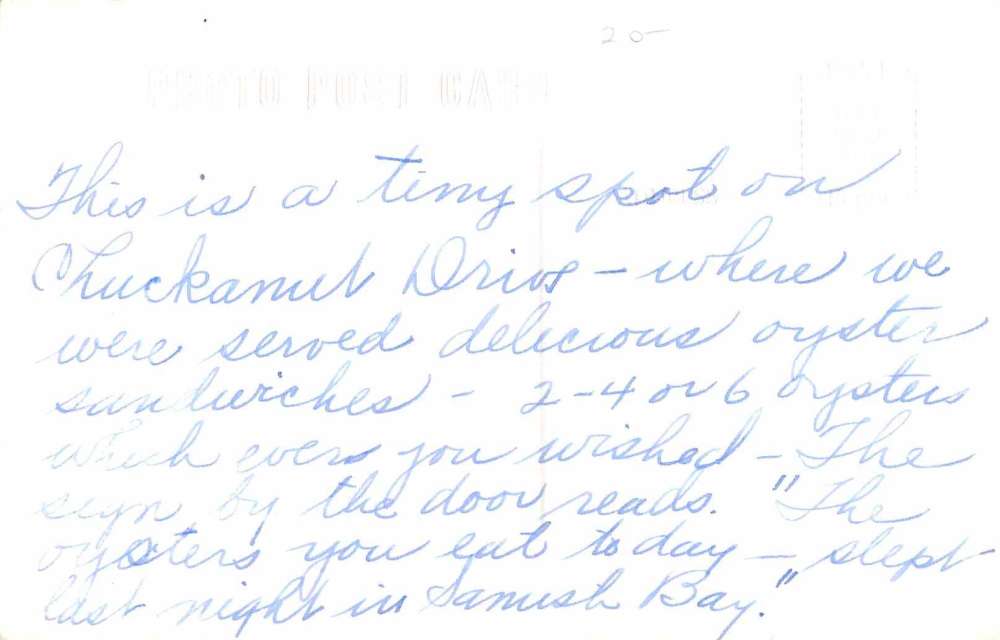 20-
PHOTO POST CARD
This is a tiny spot on
Chuckanut Drive - where we
were served delecious oyster
sandwiches - 2-4 or 6 oysters
which ever you wished - The
sign by the door reads. "The
oysters you eat today - slept
last night in Samish Bay."